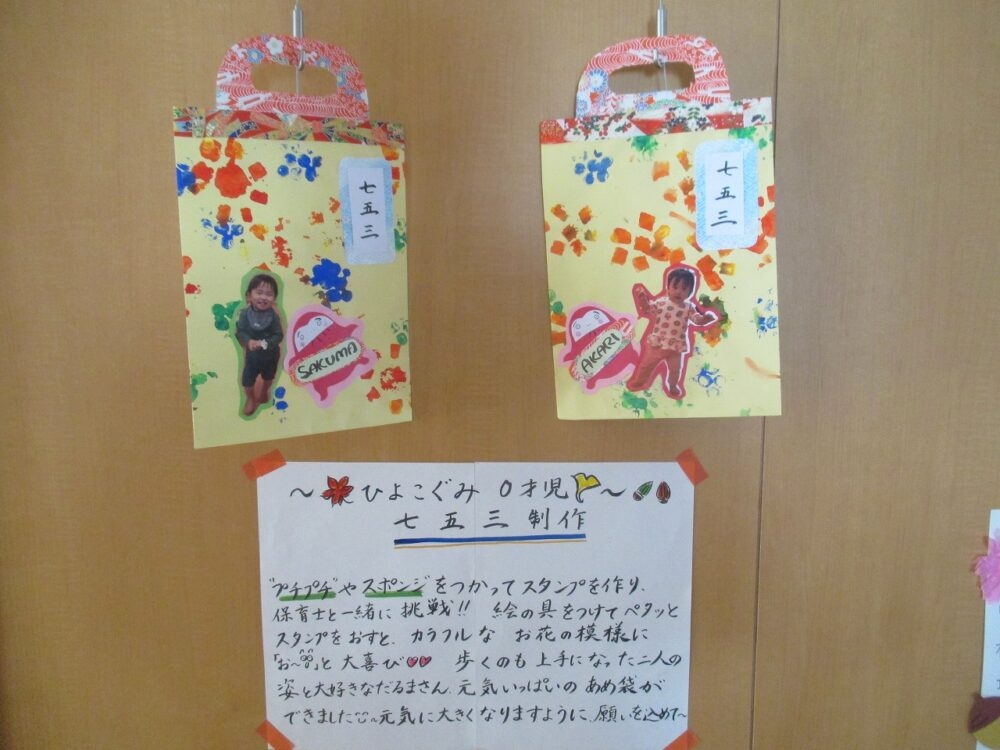 七五三
七五三
SAKUMA
AKARI
〜ひよこぐみ 0才児〜
七五三制作
"プチプチ"やスポンジをつかってスタンプを作り、
保育士と一緒に挑戦!! 絵の具をつけてペタッと
スタンプをおすと、カラフルな お花の模様に
「お〜」と大喜び♥♥ 歩くのも上手になった二人の
姿と大好きなだるまさん、元気いっぱいのあめ袋が
できました 元気に大きくなりますように、願いを込めて〜